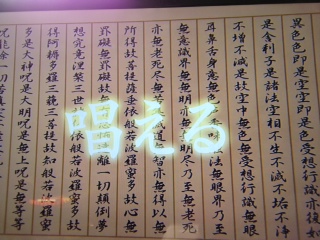 異色色即是空空即是色受想行識亦復如
是舍利子是諸法空相不生不滅不垢不浄
不増不減是故空中無色無受想行識無眼
耳鼻舌身意無色法無眼界乃至
無意識界無無明亦無明尽乃至無老死
亦無老死尽無苦道無智亦無得以無
所得故菩提薩埵依般若波羅蜜多故心無
罣礙無罣礙故無恐怖遠離一切顛倒夢
想究竟涅槃三世依般若波羅蜜多故
得阿耨多羅三藐三菩提故知般若波羅蜜
多是大神呪是大明呪是無上呪是無等等
呪能除一切苦真実
唱える